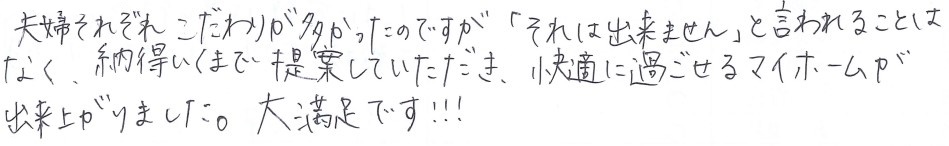 夫婦それぞれ こだわりが多かったのですが「それは出来ません」と言われることは
なく、納得いくまで提案していただき、快適に過ごせるマイホームが
出来上がりました。大満足です!!!